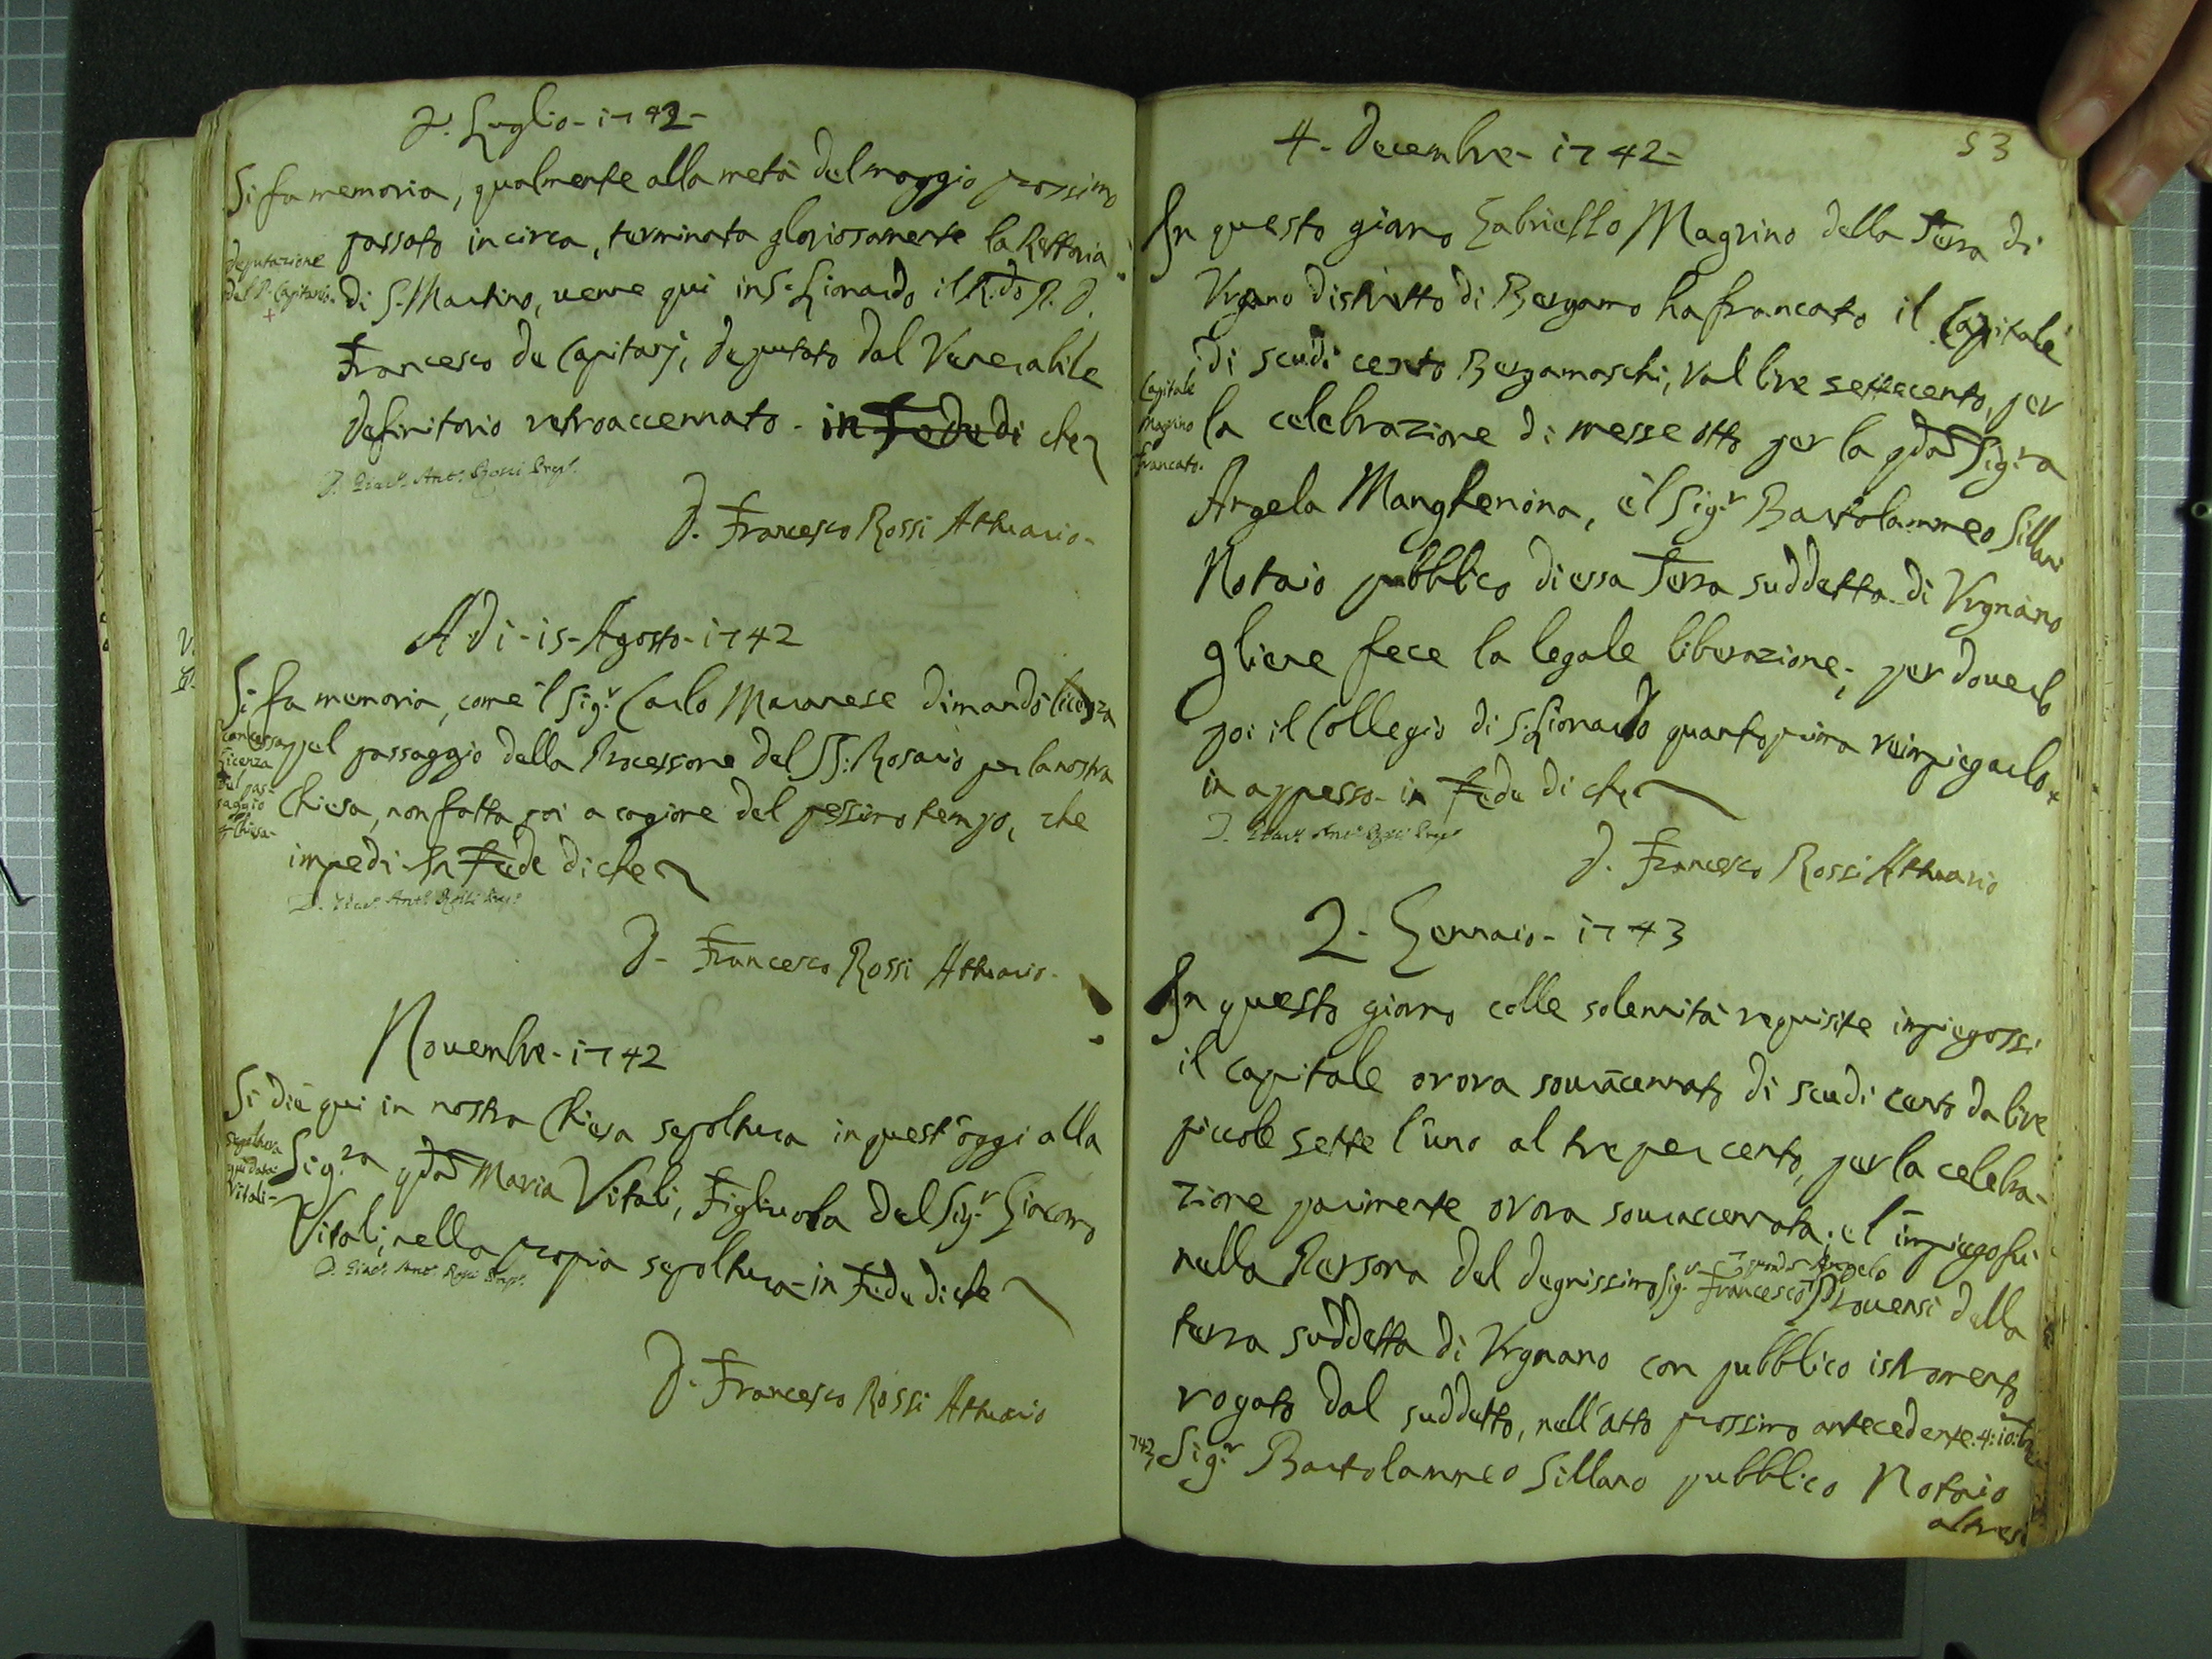 2. Luglio - 1742 -
Si fa memoria, qualmente alla metà del maggio prossimo
passato in circa, terminata gloriosamente la Rettoria
deputazione
del P. Capitanio.
di S. Martino, venne qui in S. Lionardo il R.do P. D.
Francesco de Capitanj, deputato dal Venerabile
definitorio retroaccennato - in Fede di che
D. Giac.o Ant.o Rossi Prep.o
D. Francesco Rossi Attuario -
A dì - 15 - Agosto - 1742
Si fa memoria, come 'l Sig.r Carlo Maranese dimandò licenza
concessa
Licenza
del pas-
saggio
Chiesa -
pel passaggio della Processione del SS. Rosario per la nostra
Chiesa, non fatta poi a cagione del pessimo tempo, che
impedì - In Fede di che
D. Giac.o Ant.o Rossi Prep.o
D - Francesco Rossi Attuario -
Novembre - 1742
Si diè qui in nostra Chiesa sepoltura in quest'oggi alla
sepoltura
qui data
Vitali -
Sig.ra qdam Maria Vitali, Figliuola del Sig.r Giacomo
Vitali, nella propia sepoltura - in Fede di che
D. Giac.o Ant.o Rossi Prep.o
D. Francesco Rossi Attuario
53
4 - Decembre - 1742 -
In questo giorno Gabriello Magrino della Terra di
Vrgnano distretto di Bergamo ha francato il Capitale
di scudi cento Bergamaschi, val lire settecento, per
Capitale
Magrino
francato.
la celebrazione di messe otto per la qdam Sig.ra
Angela Manghenina, e 'l Sig.r Bartolammeo Sillani
Notaio pubblico di essa Terra suddetta di Vrgnano
gliene fece la legale liberazione; per doverlo
poi il Collegio di S. Lionardo quantoprima reimpiegarlo
in appresso - in Fede di che
D. Giac.o Ant.o Rossi Prep.o
D. Francesco Rossi Attuario
2 - Gennaio - 1743
In questo giorno colle solennità requisite impiegossi
il capitale orora souraccennato di scudi cento da lire
piccole sette l'uno al tre per cento, per la celebra-
zione parimente orora souraccennata; e l'impiego fu
nella Persona del degnissimo Sig.r Francesco Angelo Prouensi della
terra suddetta di Vrgnano con pubblico istromento
rogato dal suddetto, nell'atto prossimo antecedente 4: 10:bre
742, Sig.r Bartolammeo Sillano pubblico Notaio
altresì